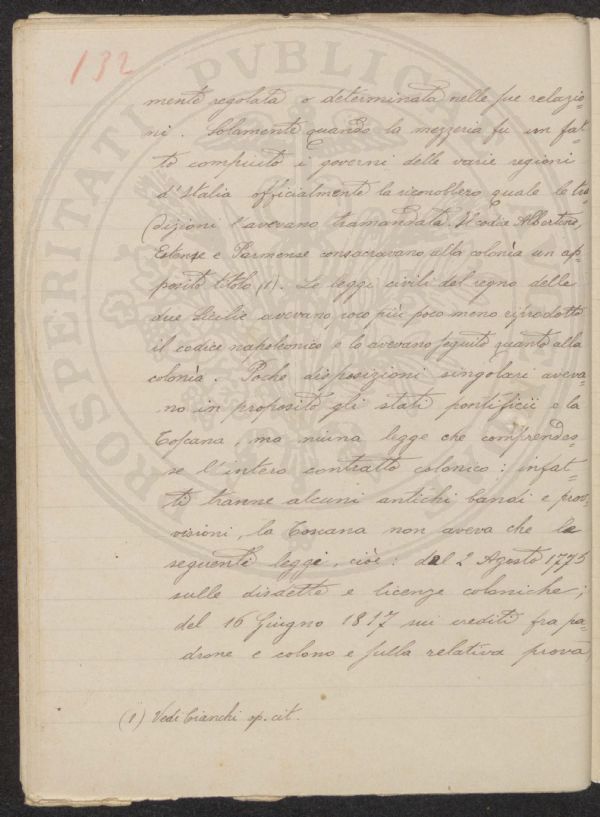 132
mente regolata o determinata nelle sue relazio-
ni. Solamente quando la mezzeria fu un fat-
to compiuto i governi delle varie regioni
d'Italia officialmente la riconobbero quale le tra-
dizioni l'avevano tramandata. Il codice Albertino,
Estense e Parmense consacravano alla colonìa un ap-
posito titolo (1). Le leggi civili del regno delle
due Sicilie avevano poco più poco meno riprodotto
il codice napoleonico e lo avevano seguito quanto alla
colonìa. Poche disposizioni singolari aveva-
no in proposito gli stati pontificii e la
Toscana, ma niuna legge che comprendes
se l'intero contratto colonico: infat-
ti tranne alcuni antichi bandi e prov-
visioni, la Toscana non aveva che le
seguenti leggi, cioè: del 2 Agosto 1775
sulle disdette e licenze coloniche;
del 16 Giugno 1817 sui crediti fra pa-
drone e colono e sulla relativa prova
(1) Vedi Cianchi op. cit.
PVBLICAE
PROSPERITATI